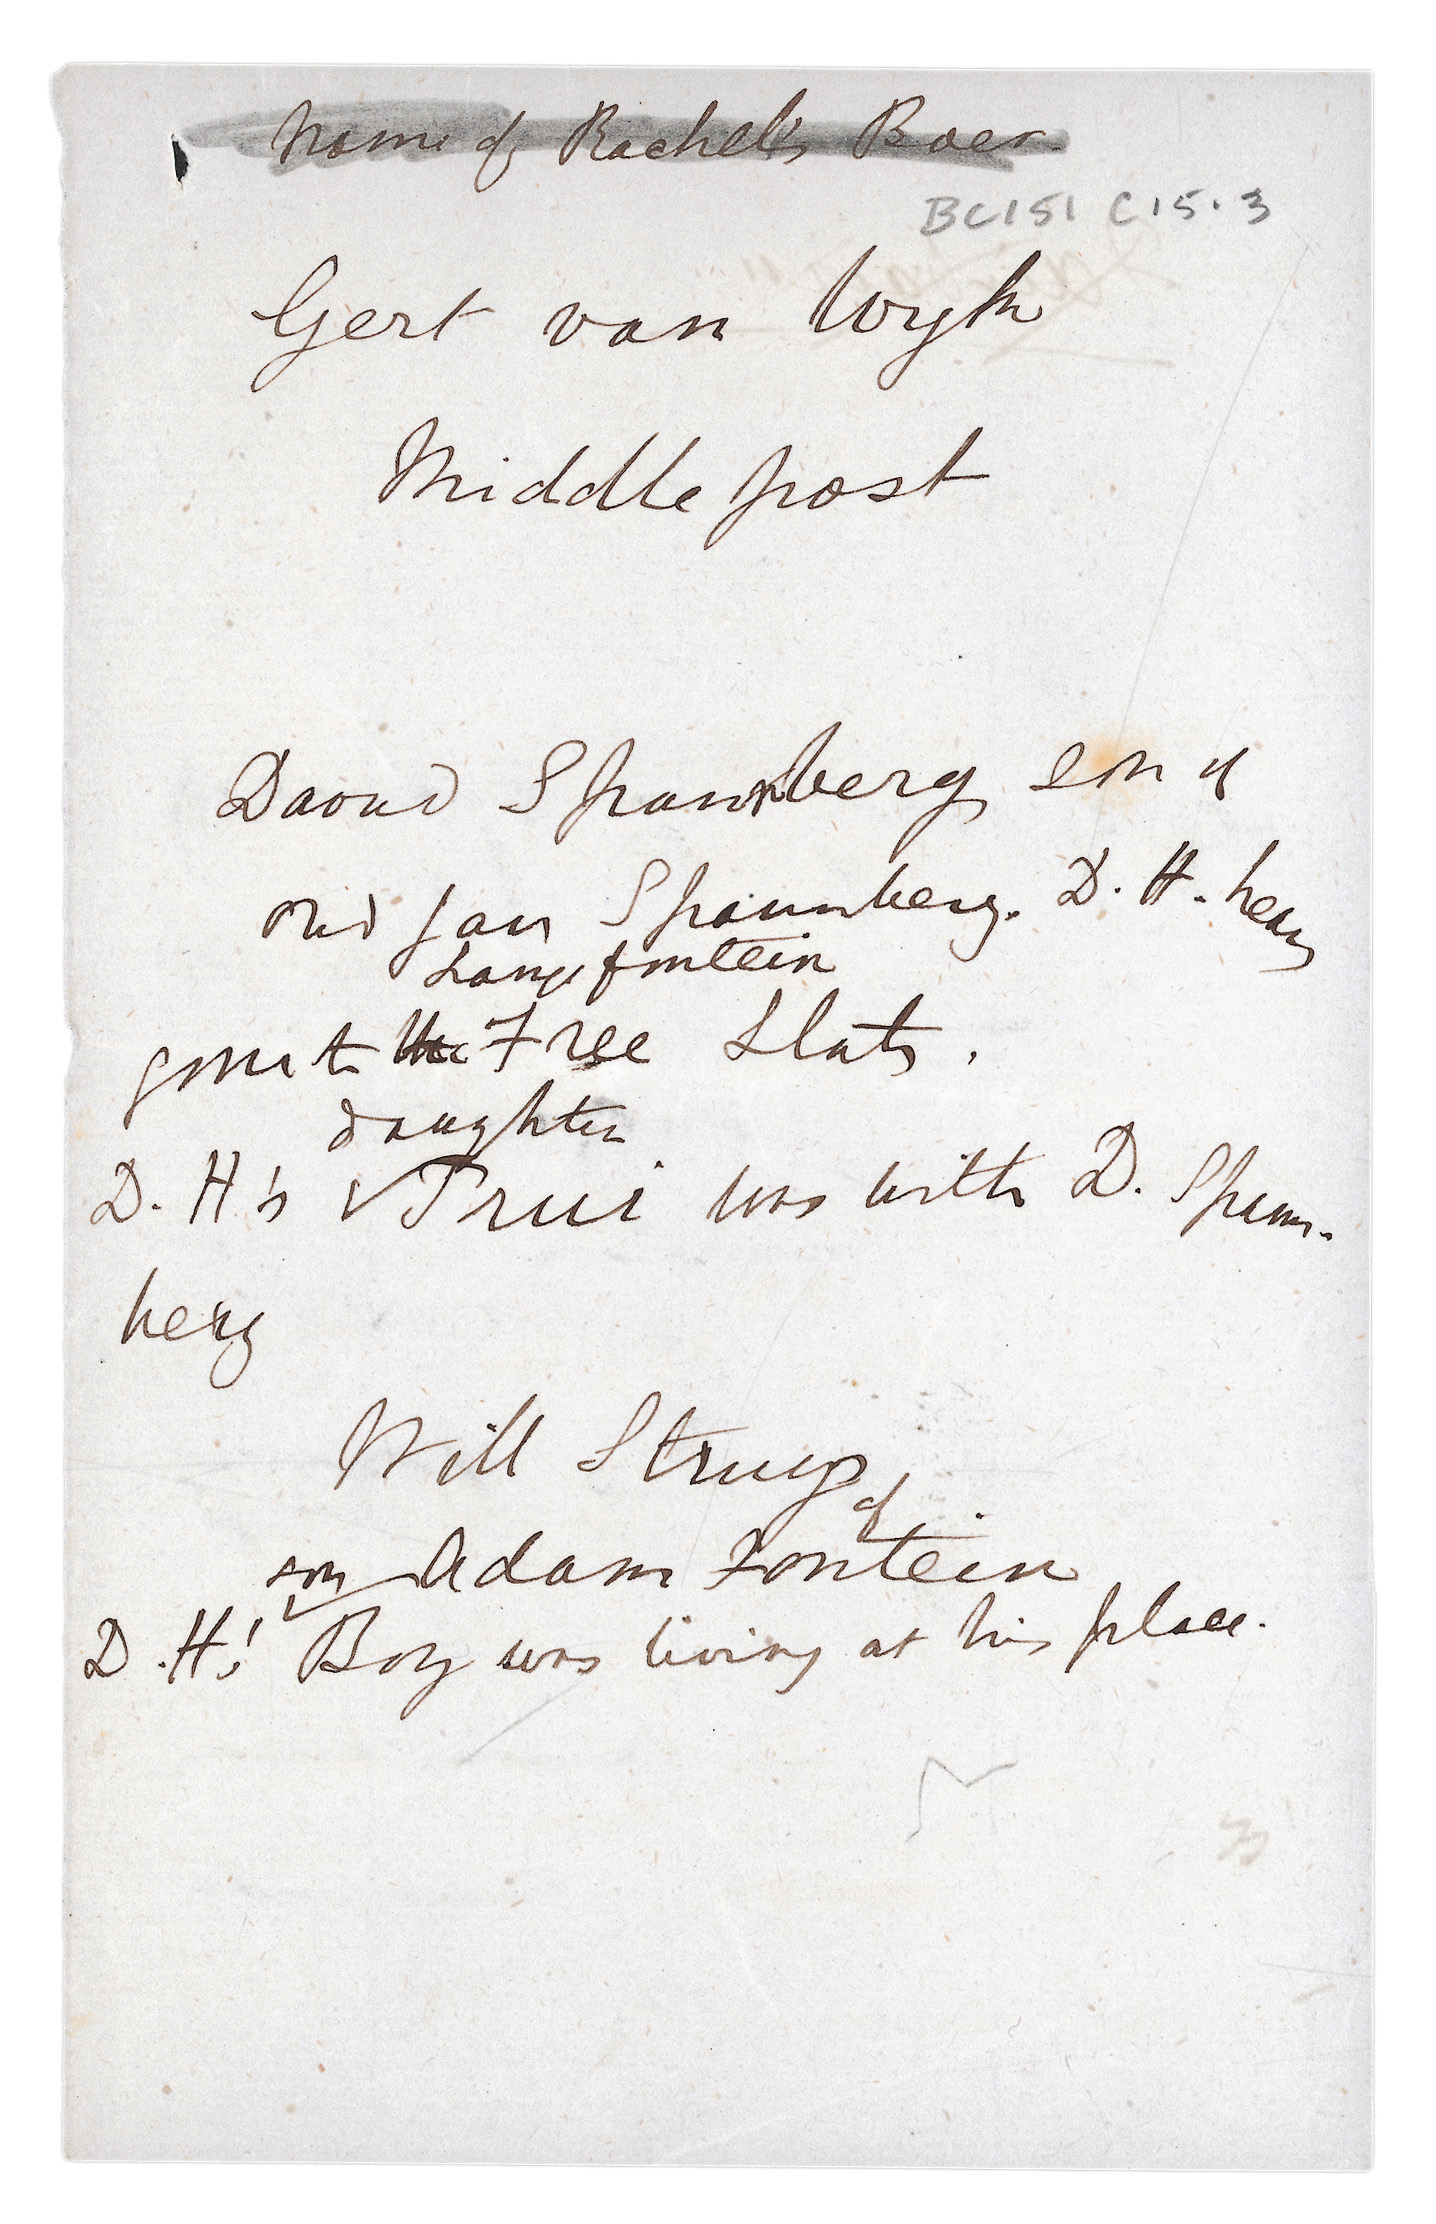 Name of Rachel's Boer.
BC151 C15.3
Gert van Wyk
Middlepost
David Spannberg son of
old Jan Spannberg. D. H. hears
Langefontein
gone to the Free State.
daughter
D. H's Trui was with D. Spann-
berg
Will Struys,
of
son Adam Fontein
D. H.'s Boy was living at his place.